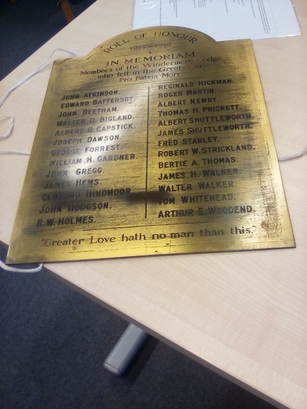 ROLL OF HONOUR
IN MEMORIAM
Members of the Windermere
who fell in the Great
Pro Patria Mori
JOHN ATKINSON.
EDWARD BATTERSBY.
JOHN BEETHAM.
WALTER G. BIGLAND.
ALBERT R. CAPSTICK.
JOSEPH DAWSON.
GEORGE FORREST.
WILLIAM H. GARDNER.
JOHN GREGG.
JAMES HEMS.
HINDMOOR.
JOHN HODGSON.
R. W. HOLMES.
REGINALD HICKMAN.
ROGER MARTIN.
ALBERT NEWBY
THOMAS H. PRICKETT.
ALBERT SHUTTLEWORTH.
JAMES SHUTTLEWORTH.
FRED STANLEY.
ROBERT W. STRICKLAND.
BERTIE A. THOMAS.
JAMES H. WALKER.
WALTER WALKER.
TOM WHITEHEAD.
ARTHUR E. WOODEND.
"Greater Love hath no man than this."